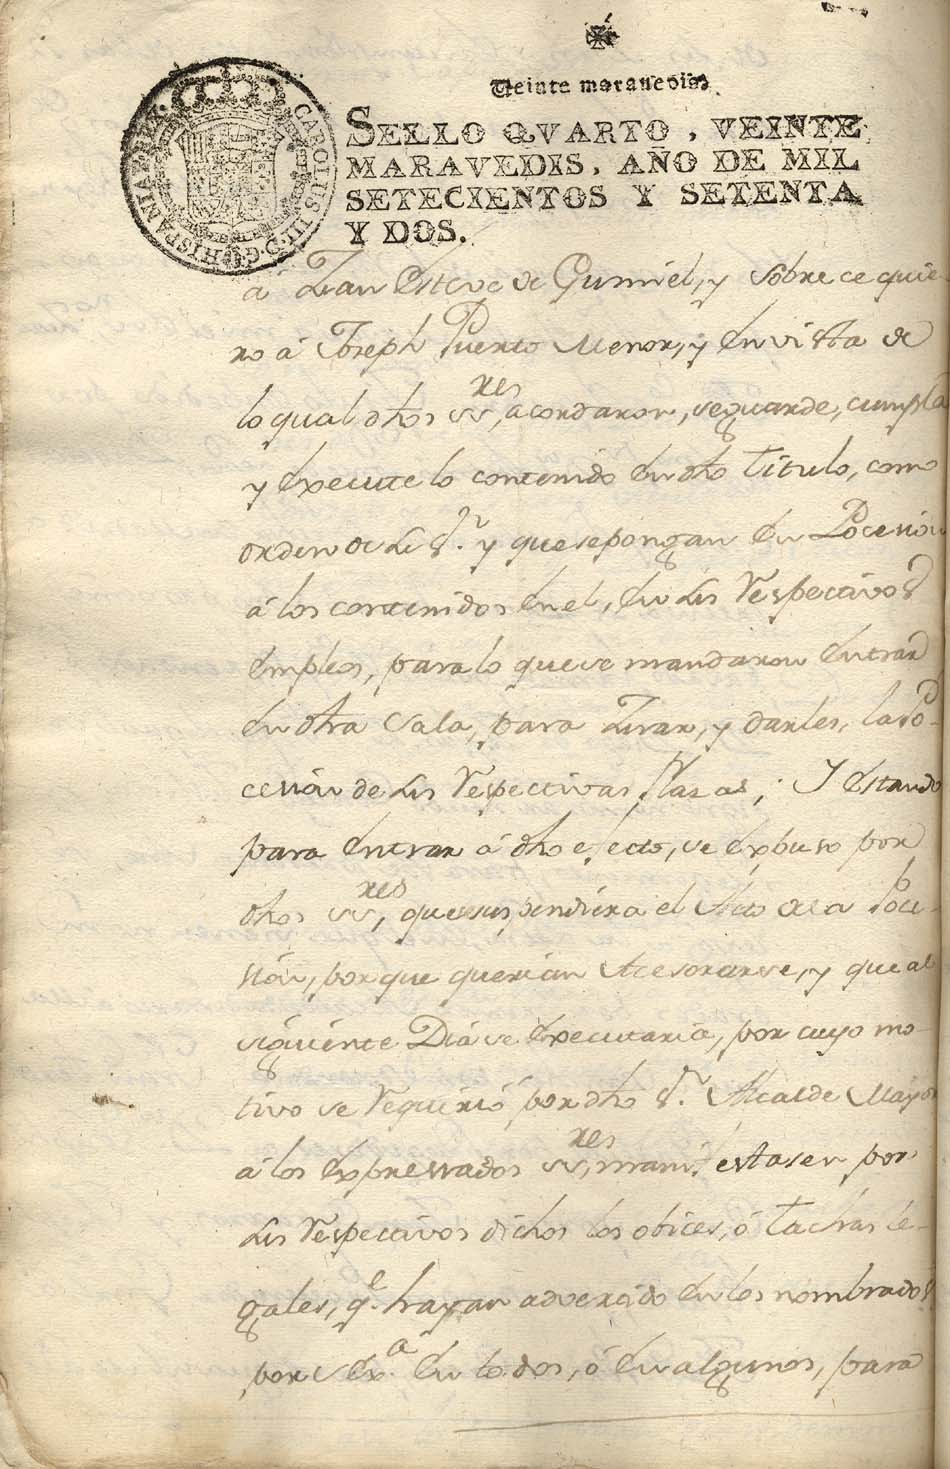 Veinte maravedis.
SELLO QVARTO, VEINTE
MARAVEDIS, AÑO DE MIL
SETECIENTOS Y SETENTA
Y DOS.
CAROLUS III. D. G. HISPANIAR. REX.
á Juan Esteve de Gumiel, y Sobre ce quie-
ro á Joseph Puerto Menor, y en vista de
lo qual dhos SS,res acordaron, se guarde, cumpla
y execute lo contenido en dho titulo, como
orden de S. S.r y que se pongan en Pocesion
á los contenidos en el, en sus Respectivos
empleos, para lo que se mandaron entrar
en dha Sala, para Jurar, y darles, la Po-
cesión de sus Respectivas Plazas; Y estando
para entrar á dho efecto, se expuso por
dhos SS,res que suspendiera el Acto de la Poce-
sión, porque querian Acesorarse, y que al
siguiente Dia se executaria, por cuyo mo-
tivo se Requirió por dho S.r Alcalde Mayor
á los expressados SS,res manifestasen por
sus Respectivos dichos los obices, ó tachas le-
gales, q.e hayan advertido en los nombrados
por S Ex.a en todos, ó en algunos, para